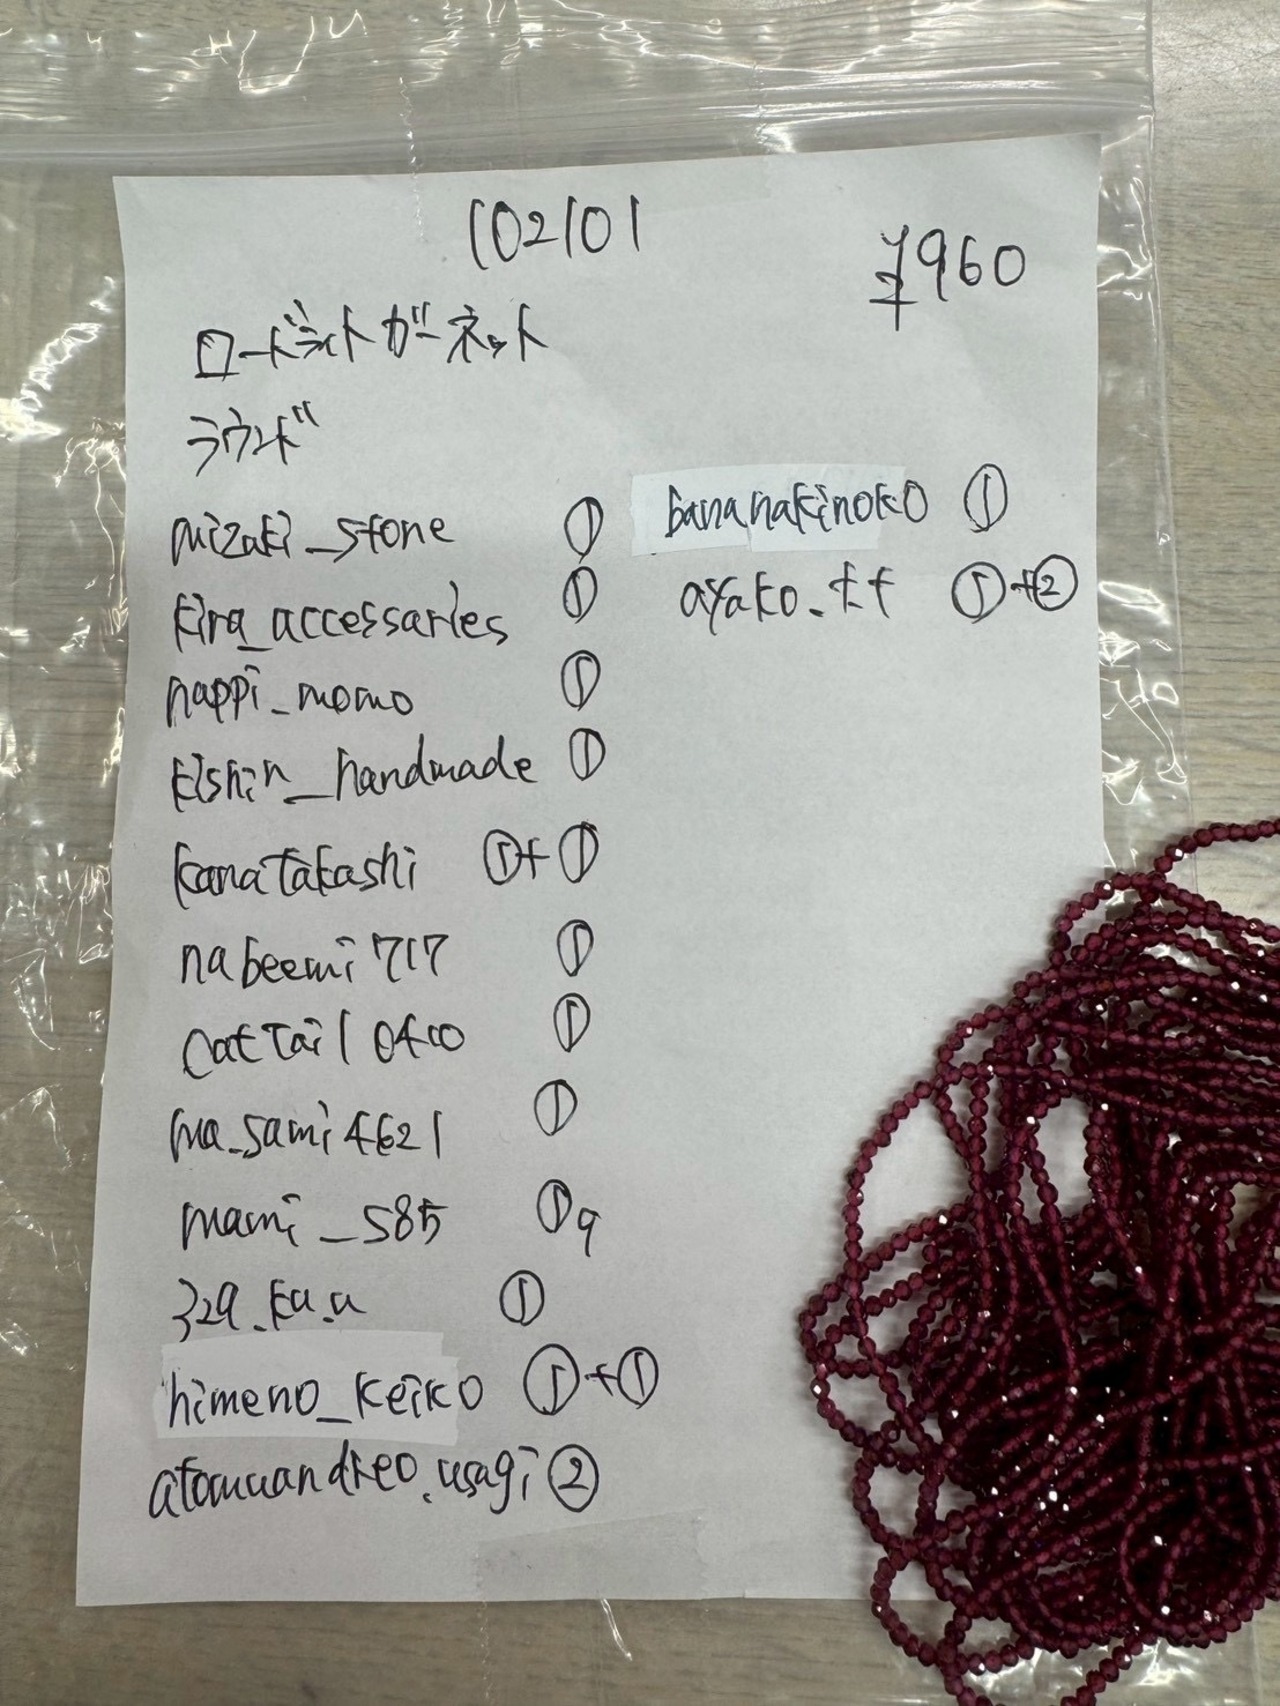 102101
¥960
ロードライトガーネット
ラウンド
mizaki_stone ①
kira_accessaries ①
nappi_momo ①
kishin_handmade ①
kanatakashi ①+①
nabeemi717 ①
cattail0400 ①
ma_sami4621 ①
mami_585 ①9
329.ka.a ①
himeno_keiko ①+①
atomuandreo.usagi ②
bananakinoko ①
ayako.tt ①+②